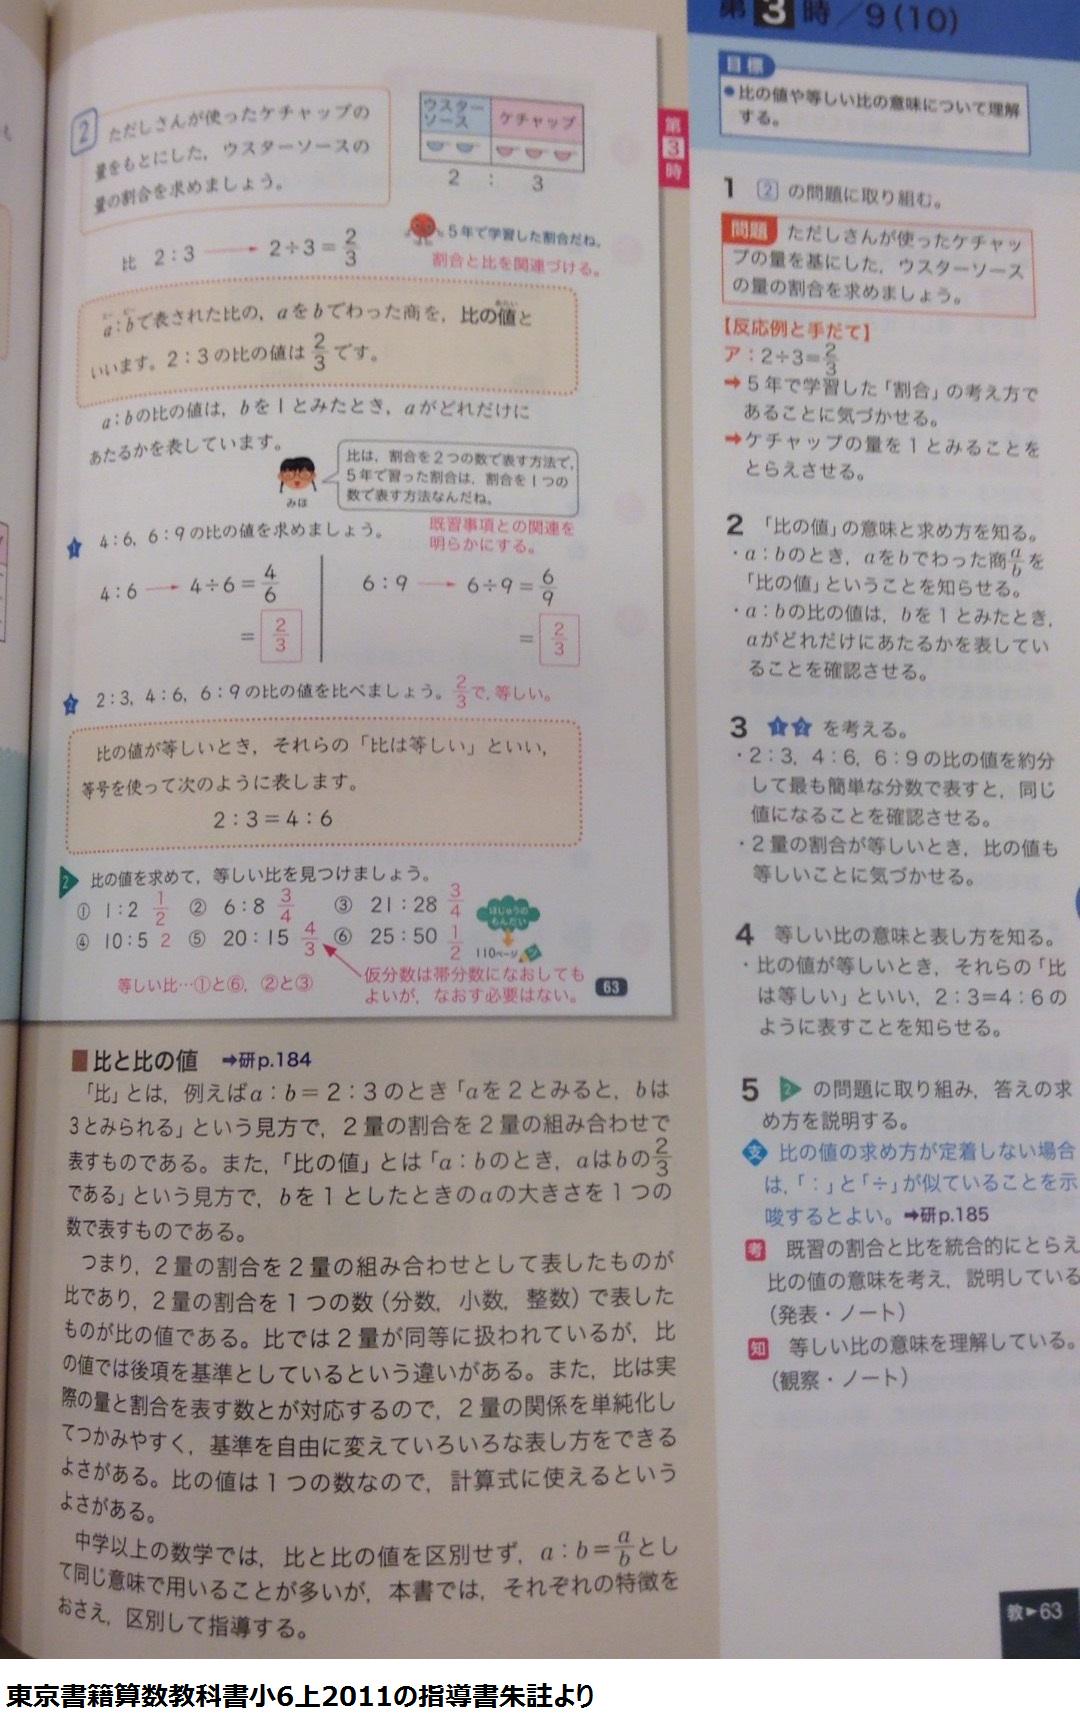 2 ただしさんが使ったケチャップの
量をもとにした，ウスターソースの
量の割合を求めましょう。
ウスター
ソース
ケチャップ
2 : 3
比 2：3 → 2÷3＝2/3
5年で学習した割合だね。
割合と比を関連づける。
a：bで表された比の，aをbでわった商を，比の値と
いいます。2：3の比の値は2/3です。
a：bの比の値は，bを1とみたとき，aがどれだけに
あたるかを表しています。
みほ
比は，割合を2つの数で表す方法で，
5年で習った割合は，割合を1つの
数で表す方法なんだね。
既習事項との関連を
明らかにする。
1 4：6，6：9の比の値を求めましょう。
4：6 → 4÷6＝4/6
＝2/3
6：9 → 6÷9＝6/9
＝2/3
2 2：3，4：6，6：9の比の値を比べましょう。2/3で，等しい。
比の値が等しいとき，それらの「比は等しい」といい，
等号を使って次のように表します。
2：3＝4：6
2 比の値を求めて，等しい比を見つけましょう。
① 1：2 1/2 ② 6：8 3/4 ③ 21：28 3/4
④ 10：5 2 ⑤ 20：15 4/3 ⑥ 25：50 1/2
ほじゅうの
もんだい
110ページ
等しい比…①と⑥，②と③
仮分数は帯分数になおしても
よいが，なおす必要はない。
63
第3時
■比と比の値 ➡研p.184
「比」とは，例えばa：b＝2：3のとき「aを2とみると，bは
3とみられる」という見方で，2量の割合を2量の組み合わせで
表すものである。また，「比の値」とは「a：bのとき，aはbの2/3
である」という見方で，bを1としたときのaの大きさを1つの
数で表すものである。
つまり，2量の割合を2量の組み合わせとして表したものが
比であり，2量の割合を1つの数（分数，小数，整数）で表した
ものが比の値である。比では2量が同等に扱われているが，比
の値では後項を基準としているという違いがある。また，比は実
際の量と割合を表す数とが対応するので，2量の関係を単純化し
てつかみやすく，基準を自由に変えていろいろな表し方をできる
よさがある。比の値は1つの数なので，計算式に使えるという
よさがある。
中学以上の数学では，比と比の値を区別せず，a：b＝a/bとし
て同じ意味で用いることが多いが，本書では，それぞれの特徴を
おさえ，区別して指導する。
第3時／9（10）
目標
●比の値や等しい比の意味について理解
する。
1 2 の問題に取り組む。
問題 ただしさんが使ったケチャッ
プの量を基にした，ウスターソース
の量の割合を求めましょう。
【反応例と手だて】
ア：2÷3＝2/3
➡5年で学習した「割合」の考え方で
あることに気づかせる。
➡ケチャップの量を1とみることを
とらえさせる。
2 「比の値」の意味と求め方を知る。
・a：bのとき，aをbでわった商a/bを
「比の値」ということを知らせる。
・a：bの比の値は，bを1とみたとき，
aがどれだけにあたるかを表してい
ることを確認させる。
3 1 2 を考える。
・2：3，4：6，6：9の比の値を約分
して最も簡単な分数で表すと，同じ
値になることを確認させる。
・2量の割合が等しいとき，比の値も
等しいことに気づかせる。
4 等しい比の意味と表し方を知る。
・比の値が等しいとき，それらの「比
は等しい」といい，2：3＝4：6の
ように表すことを知らせる。
5 2 の問題に取り組み，答えの求
め方を説明する。
支 比の値の求め方が定着しない場合
は，「：」と「÷」が似ていることを示
唆するとよい。➡研p.185
考 既習の割合と比を統合的にとらえ
比の値の意味を考え，説明している
（発表・ノート）
知 等しい比の意味を理解している。
（観察・ノート）
教▶63
東京書籍算数教科書小6上2011の指導書朱註より